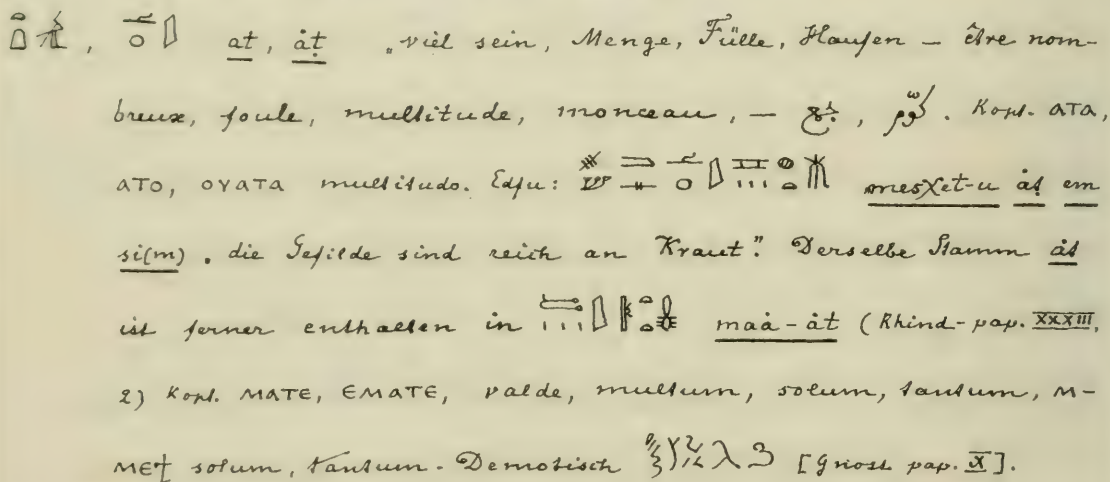 , at, ȧṭ „viel sein, Menge, Fülle, Haufen – être nom-
breux, foule, multitude, monceau, – . Kopt. ATA,
ATO, OYATA multitudo. Edfu: mesχet-u ȧṭ em
si(m) „die Gefilde sind reich an Kraut". Derselbe Stamm ȧt
ist ferner enthalten in maȧ-ȧt (Rhind-pap. XXXIII,
2) Kopt. MATE, EMATE, valde, multum, solum, tantum, M-
MEϮ solum, tantum. Demotisch [Gnost pap. X].